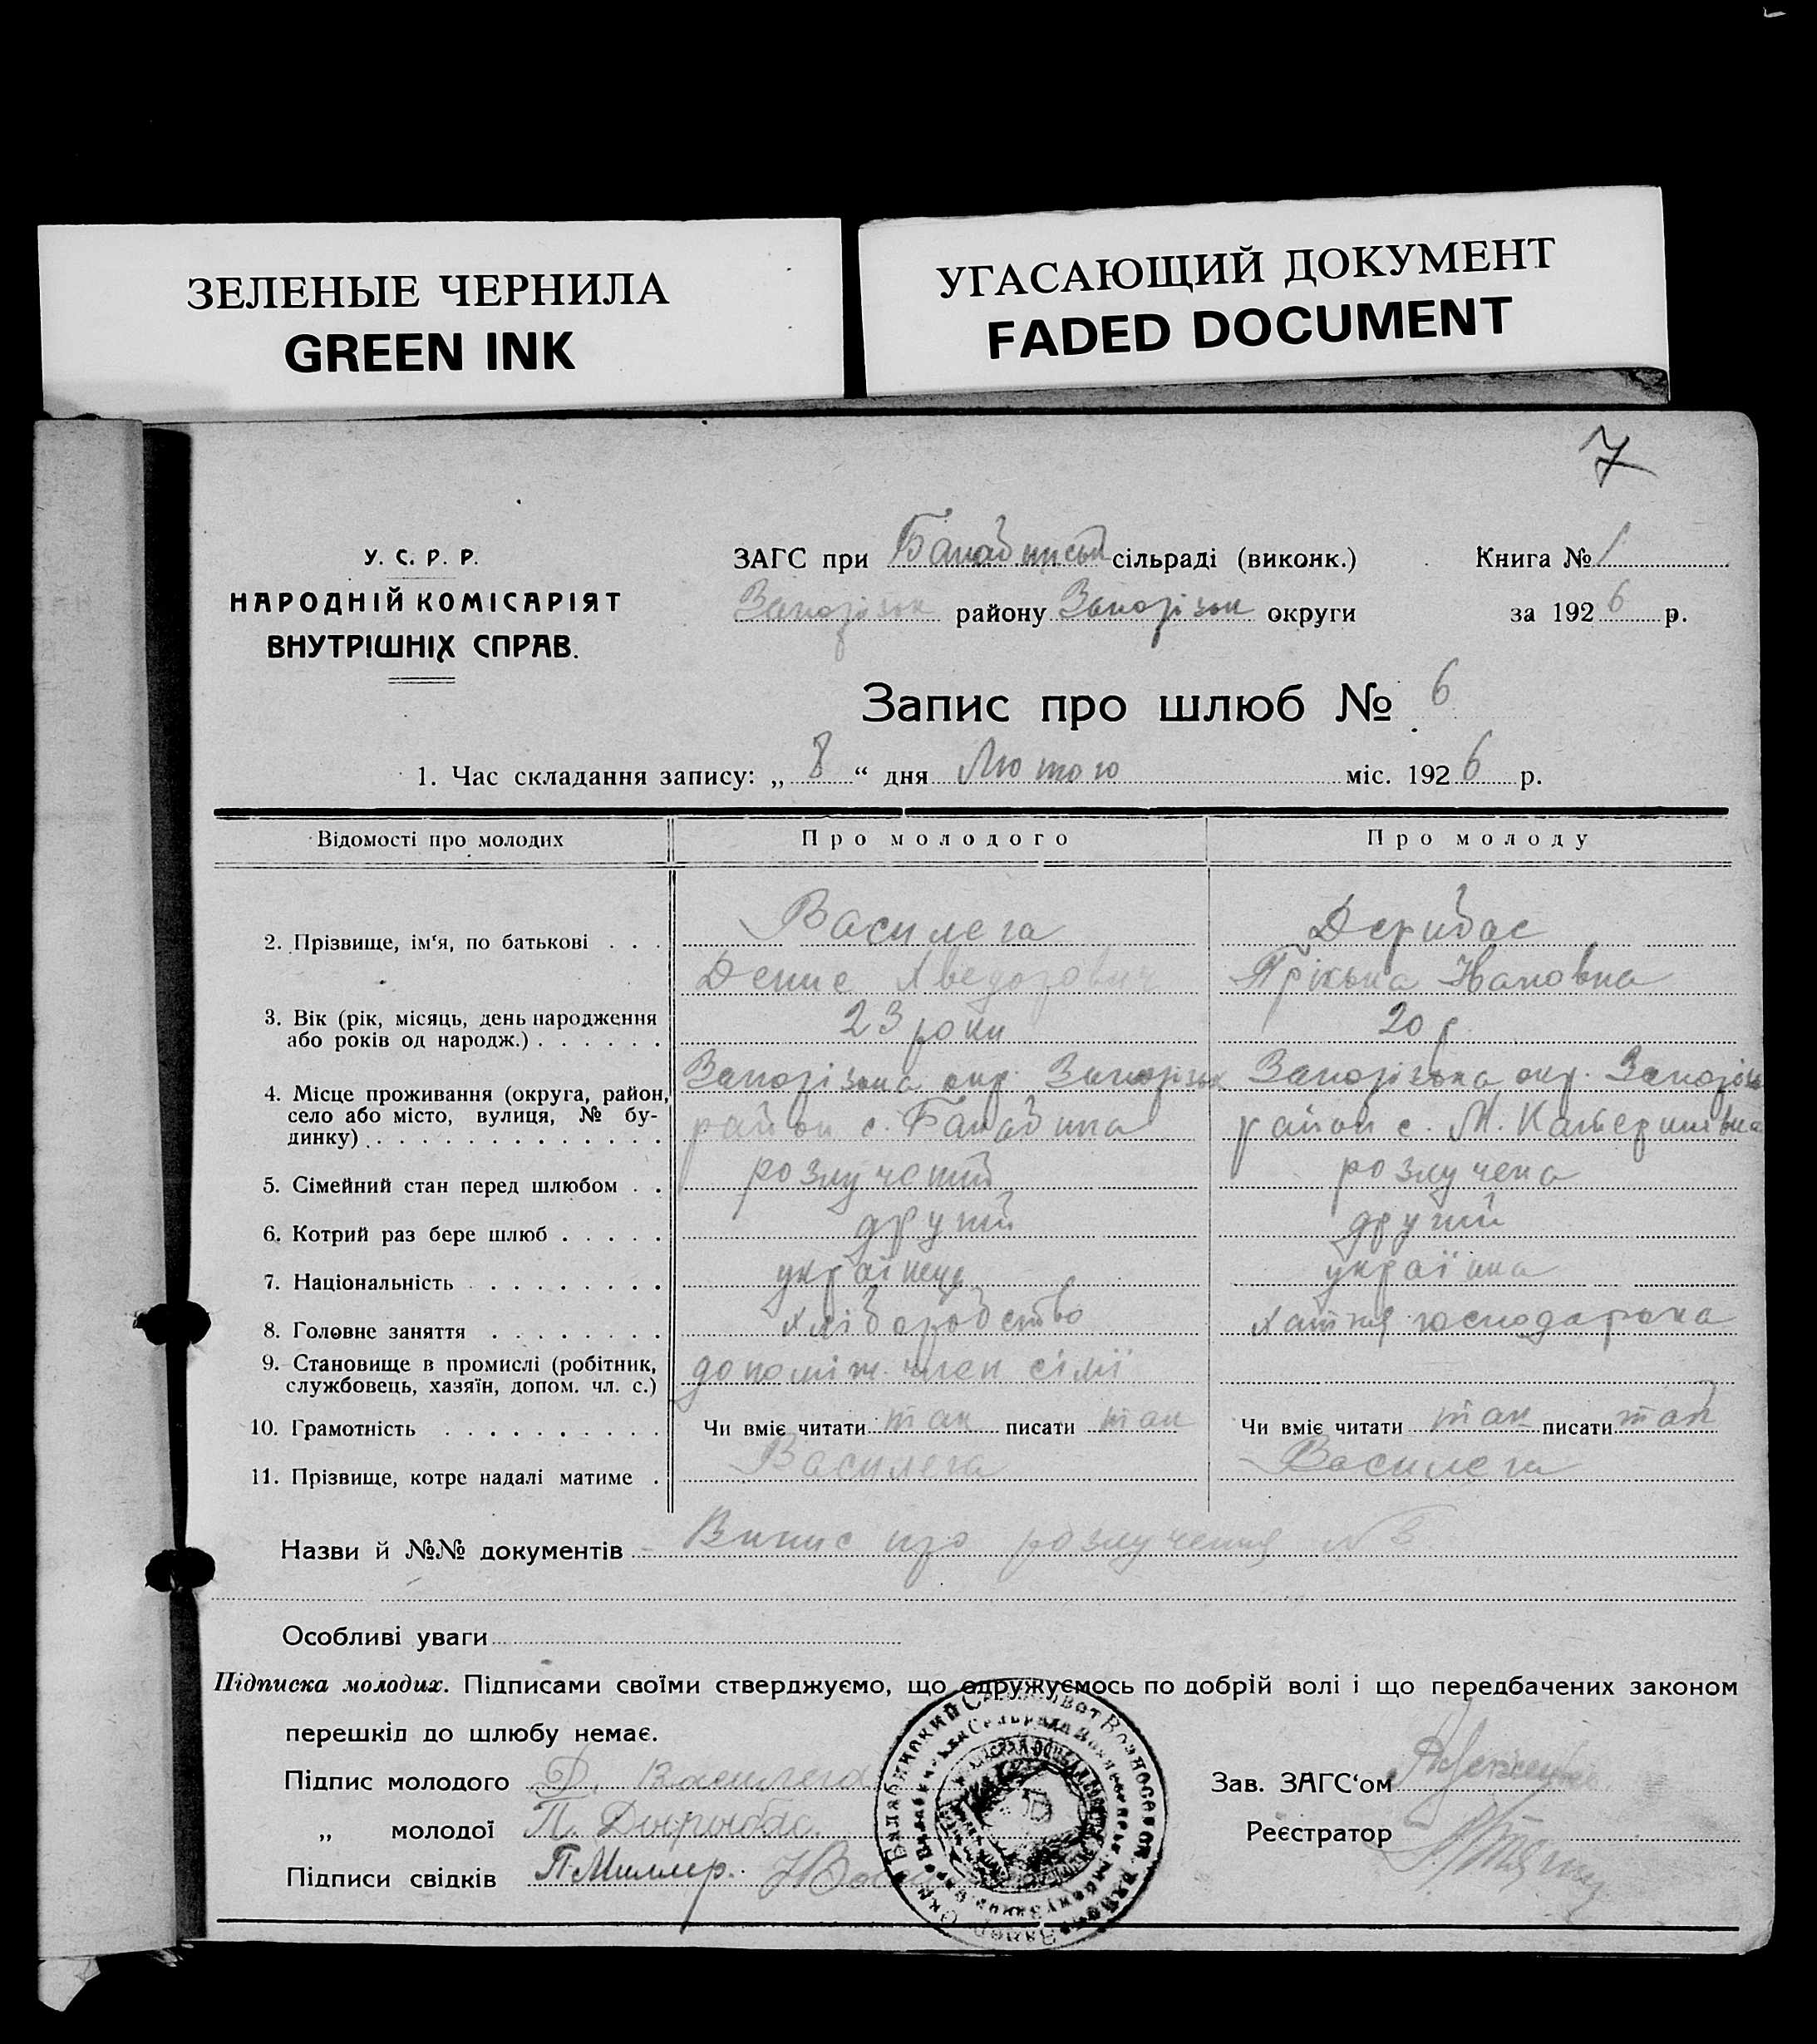 ЗЕЛЕНЫЕ ЧЕРНИЛА
GREEN INK
УГАСАЮЩИЙ ДОКУМЕНТ
FADED DOCUMENT
7
У. С. Р. Р.
НАРОДНІЙ КОМІСАРІЯТ
ВНУТРІШНІХ СПРАВ.
ЗАГС при сільраді (виконк.)
Запорізьк району Запорізьк округи
Книга № 1
за 1926 р.
Запис про шлюб № 6
1. Час складання запису: „ 8 “ дня Лютого міс. 1926 р.
Відомості про молодих Про молодого Про молоду
2. Прізвище, ім‘я, по батькові . . . Василега Дерибас
Денис Пріська Івановна
3. Вік (рік, місяць, день народження
або років од народж.) . . . . . . 23 роки 20 р
4. Місце проживання (округа, район, Запорізька окр. Запорізьк Запорізька окр. Запорізьк
село або місто, вулиця, № бу- район с. Балабина район с. М. Катеринівка
динку) . . . . . . . . . . . . .
5. Сімейний стан перед шлюбом . . розлучений розлучена
6. Котрий раз бере шлюб . . . . . другий другий
7. Національність . . . . . . . . . українець українка
8. Головне заняття . . . . . . . . хліборобство хатня господарька
9. Становище в промислі (робітник, допоміж. член сімї
службовець, хазяїн, допом. чл. с.)
10. Грамотність . . . . . . . . . . Чи вміє читати так писати так Чи вміє читати так писати так
11. Прізвище, котре надалі матиме . Василега Василега
Назви й №№ документів Випис про розлучення № 3
Особливі уваги
Підписка молодих. Підписами своїми стверджуємо, що одружуємось по добрій волі і що передбачених законом
перешкід до шлюбу немає.
Підпис молодого Д. Василега
„ молодої П. Дирибас.
Підписи свідків П. Миллер.
Зав. ЗАГС‘ом
Реєстратор